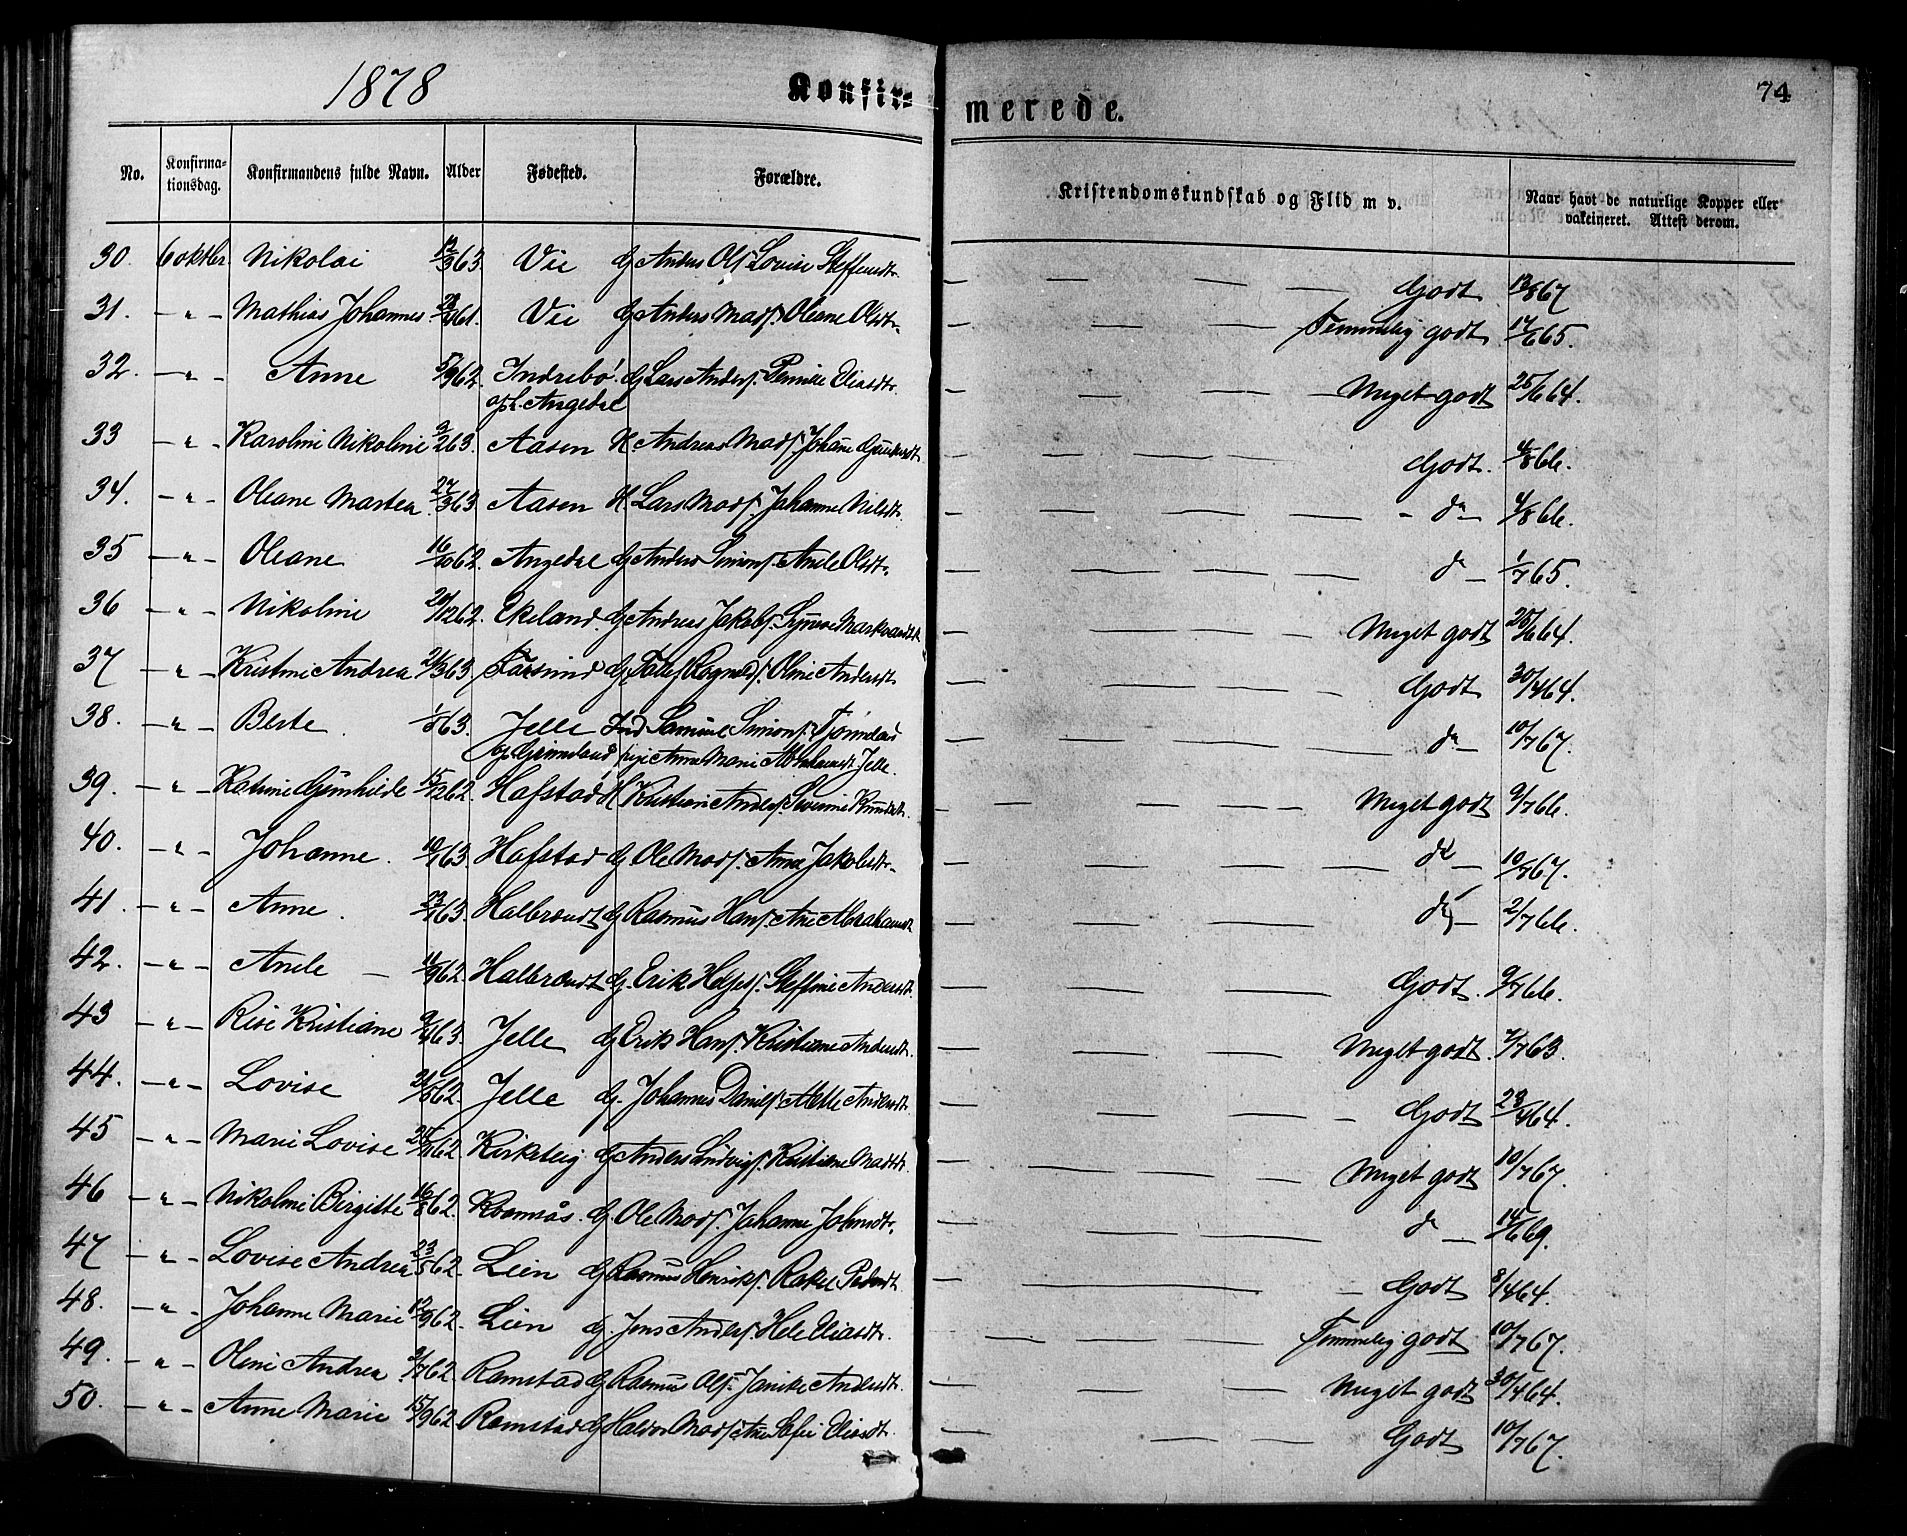 1878 Konfir= merede. 74
No. Konfirma-tionsdag. Konfirmandens fulde Navn. Alder Fødested. Forældre. Kristendomskundskab og Flid m v. Naar havt de naturlige Kopper eller vakcineret. Attest derom.
30. 6 oktbr. Nikolai 12/3 63. Vie G. Anders Ols. Lovise Steffensdtr. — — — — Godt 12/8 67
31. — " — Mathias Johannes 61. Vie G. Anders Mads. Oleane Olsdtr. — — — — Temmelig godt 17/6 65.
32. — " — Anne 5/9 62. Indrebø G. Lars Anders. Eliasdtr. — — — — Meget godt 25/6 64.
opf. Angedal
33 — " — Karoline Nikoline 9/2 63. Aasen H. Andreas Mads. Johanne — — — — Godt. 4/8 66.
34. — " — Oleane Martea 27/3 63 Aasen H. Lars Mads. Johanne Nilsdtr. — — — — — do — 4/8 66.
35 — " — Oleane 16/10 62. Angedal G. Anders Simons. Anele Olsdtr. — — — — do — 1/7 65.
36 — " — Nikoline 20/12 62. Ekeland G. Andreas Jakobs. Synnøve — — — — Meget godt 25/6 64.
37 — " — Kristine Andrea 21/3 63 Farsund G. Ragnvalds. Oline Andersdt. — — — — Godt 30/4 64.
38. — " — Berte 63. Jelle Ind. Samuel Simons. — — — — do — 10/7 67.
og Grimeland pige Anne Marie Abrahamsdt. Jelle.
39. — " — Katrine Gunhilde 15/12 62. Hafstad H. Kristian Anders. Severine Knudsdt. — — — — Meget godt 9/7 66.
40. — " — Johanne. 63. Hafstad G. Ole Mads. Anne Jakobsdtr. — — — — do — 67.
41. — " — Anne. 63. Halbrendt G. Rasmus Hans. Ane Abrahamsdt. — — — — do — 2/7 66.
42. — " — Anele — 62. Halbrendt G. Erik Helges. Steffine Andersdt. — — — — Godt. 9/7 66.
43 — " — Rise Kristiane 63. Jelle G. Erik Hans. Kristiane Andersdt. — — — — Meget godt. 7/7 63.
44. — " — Lovise 62. Jelle G. Johannes Daniels. Mette Andersdt. — — — — — Godt 23/4 64.
45 — " — Marie Lovise 62. Kirketeig G. Anders Ludvigs. Kristiane Madsdtr. — — — — Meget godt 10/7 67.
46 — " — Nikoline Birgitte 16/8 62. Kvamsås. G. Ole Mads. Johanne Johnsdtr. — — — — do — 14/6 69.
47 — " — Lovise Andrea 23/5 62. Lien G. Rasmus Henriks. Rakel Pedersdt. — — — Godt 8/4 64.
48. — " — Johanne Marie 12/9 62. Lien G. Jens Anders. Hele Eliasdtr. — — — — Temmelig godt 10/7 67.
49. — " — Oline Andrea 3/7 62. Ramstad G. Rasmus Ols. Janike Andersdt. — — — — Meget godt 30/4 64.
50. — " — Anne Marie 15/9 62. Ramstad G. Haldor Mads. Ane Sofie Eliasdt. — — — — Godt 10/7 67.